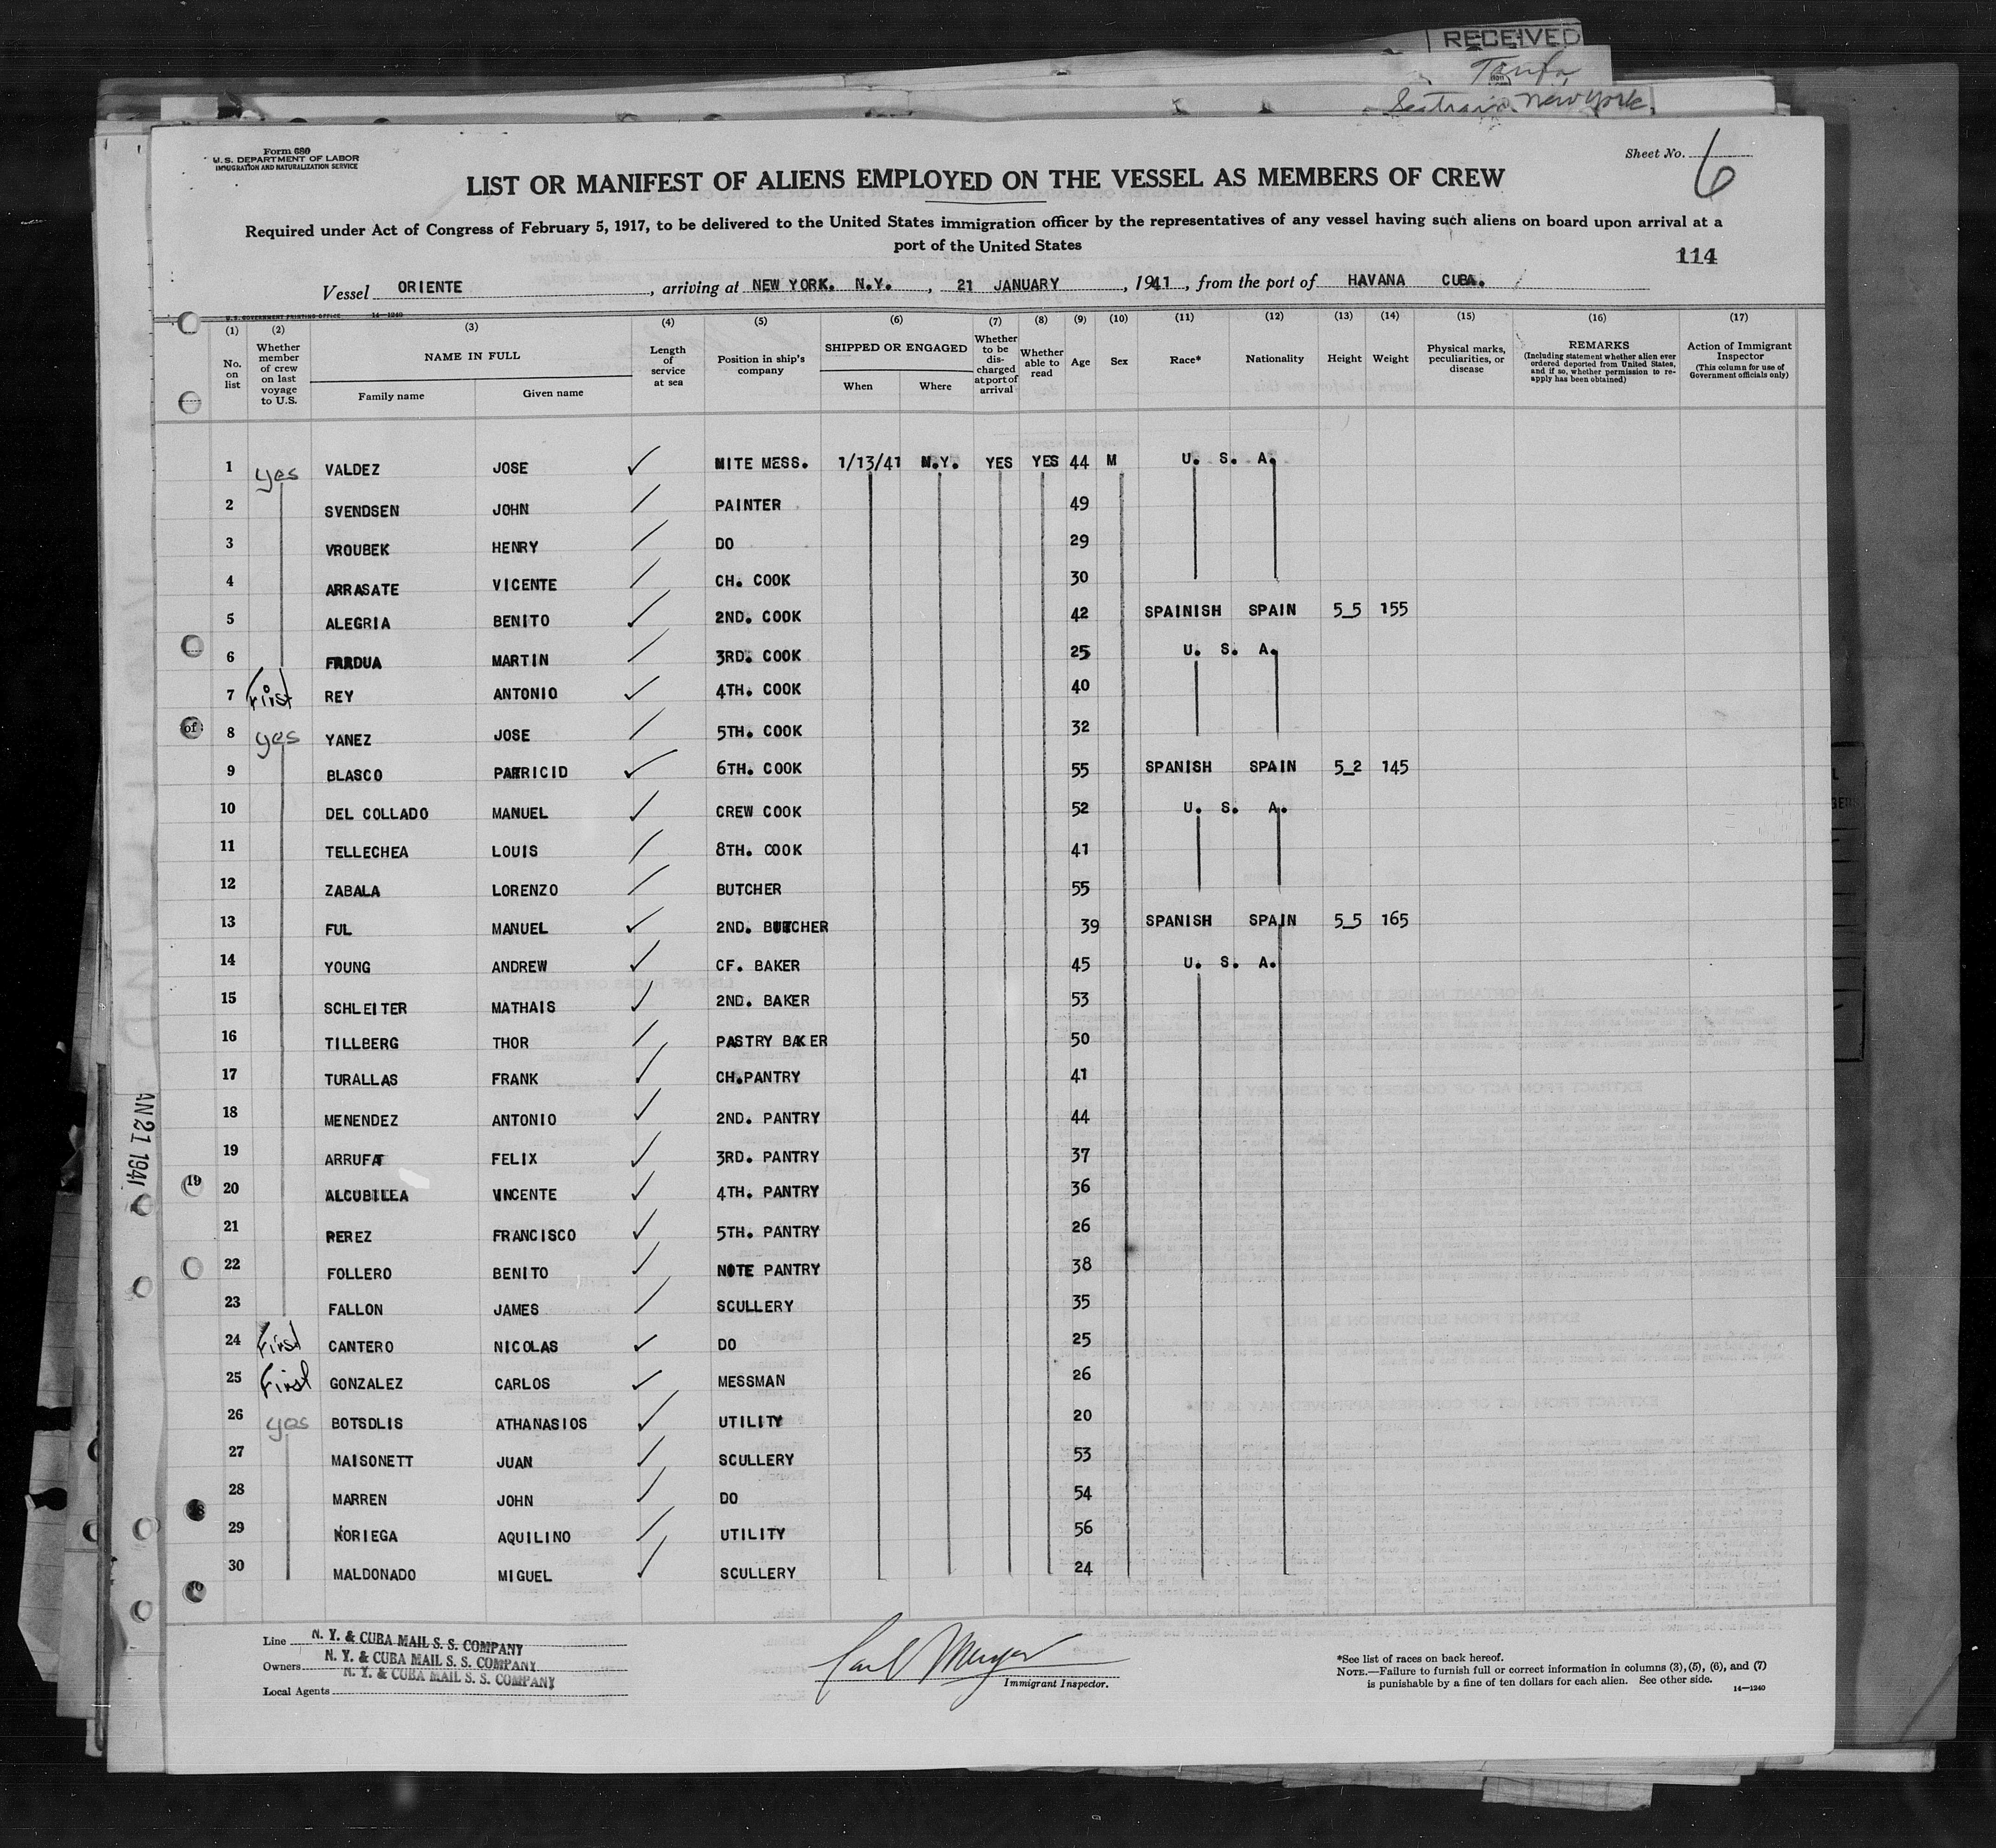 RECEIVED
Seatrain New York.
Form 680
U. S. DEPARTMENT OF LABOR
IMMIGRATION AND NATURALIZATION SERVICE
Sheet No. 6
LIST OR MANIFEST OF ALIENS EMPLOYED ON THE VESSEL AS MEMBERS OF CREW
Required under Act of Congress of February 5, 1917, to be delivered to the United States immigration officer by the representatives of any vessel having such aliens on board upon arrival at a
port of the United States
114
Vessel ORIENTE, arriving at NEW YORK. N.Y., 21 JANUARY, 1941, from the port of HAVANA CUBA.
U. S. GOVERNMENT PRINTING OFFICE 14-1240
(1) (2) (3) (4) (5) (6) (7) (8) (9) (10) (11) (12) (13) (14) (15) (16) (17)
No. on list
Whether member of crew on last voyage to U.S.
NAME IN FULL
Family name Given name
Length of service at sea
Position in ship's company
SHIPPED OR ENGAGED
When Where
Whether to be discharged at port of arrival
Whether able to read
Age Sex Race* Nationality Height Weight
Physical marks, peculiarities, or disease
REMARKS
(Including statement whether alien ever ordered deported from United States, and if so, whether permission to re-apply has been obtained)
Action of Immigrant Inspector
(This column for use of Government officials only)
1 yes VALDEZ JOSE NITE MESS. 1/13/41 N.Y. YES YES 44 M U. S. A.
2 SVENDSEN JOHN PAINTER 49
3 VROUBEK HENRY DO 29
4 ARRASATE VICENTE CH. COOK 30
5 ALEGRIA BENITO 2ND. COOK 42 SPAINISH SPAIN 5_5 155
6 MARTIN 3RD. COOK 25 U. S. A.
7 First REY ANTONIO 4TH. COOK 40
8 yes YANEZ JOSE 5TH. COOK 32
9 BLASCO PATRICID 6TH. COOK 55 SPANISH SPAIN 5_2 145
10 DEL COLLADO MANUEL CREW COOK 52 U. S. A.
11 TELLECHEA LOUIS 8TH. COOK 41
12 ZABALA LORENZO BUTCHER 55
13 FUL MANUEL 2ND. BUTCHER 39 SPANISH SPAIN 5_5 165
14 YOUNG ANDREW CF. BAKER 45 U. S. A.
15 SCHLEITER MATHAIS 2ND. BAKER 53
16 TILLBERG THOR PASTRY BAKER 50
17 TURALLAS FRANK CH.PANTRY 41
18 MENENDEZ ANTONIO 2ND. PANTRY 44
19 ARRUFAT FELIX 3RD. PANTRY 37
20 ALCUBILLA VINCENTE 4TH. PANTRY 36
21 PEREZ FRANCISCO 5TH. PANTRY 26
22 FOLLERO BENITO NITE PANTRY 38
23 FALLON JAMES SCULLERY 35
24 First CANTERO NICOLAS DO 25
25 First GONZALEZ CARLOS MESSMAN 26
26 yes BOTSDLIS ATHANASIOS UTILITY 20
27 MAISONETT JUAN SCULLERY 53
28 MARREN JOHN DO 54
29 NORIEGA AQUILINO UTILITY 56
30 MALDONADO MIGUEL SCULLERY 24
AN 21 1941
Line N. Y. & CUBA MAIL S. S. COMPANY
Owners N. Y. & CUBA MAIL S. S. COMPANY
Local Agents N. Y. & CUBA MAIL S. S. COMPANY
Immigrant Inspector.
*See list of races on back hereof.
NOTE.—Failure to furnish full or correct information in columns (3), (5), (6), and (7)
is punishable by a fine of ten dollars for each alien. See other side.
14-1240